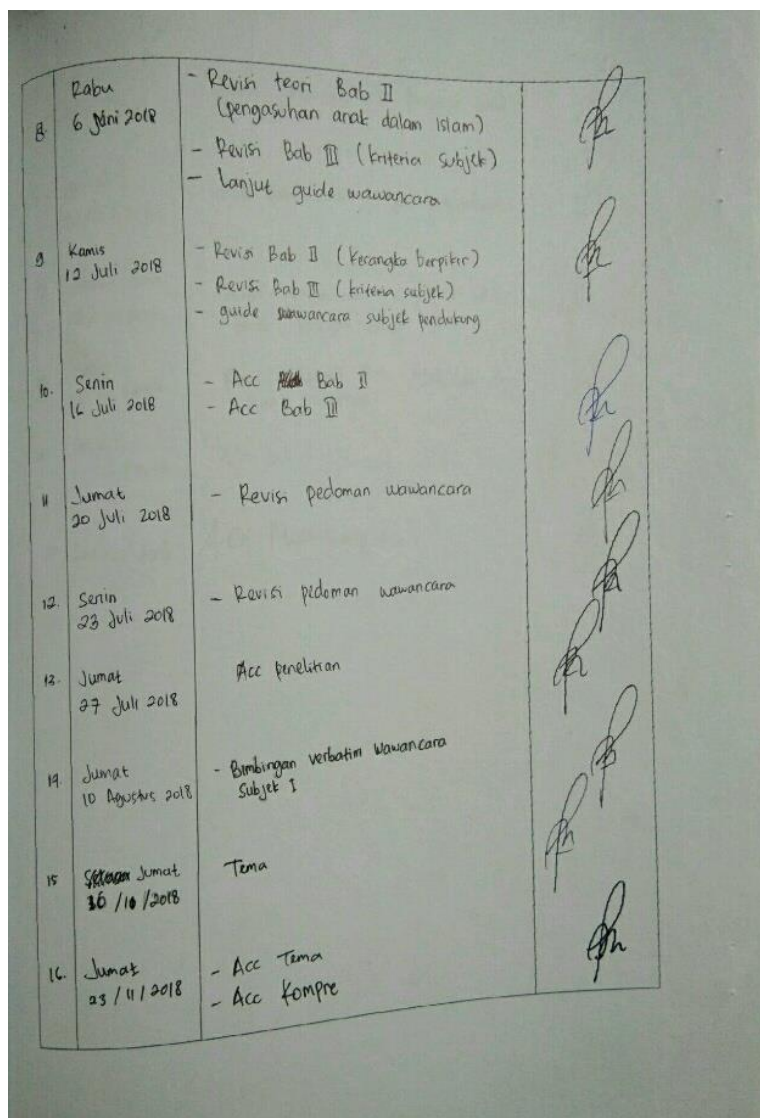 Rabu
8. 6 Juni 2018
- Revisi teori Bab II
(pengasuhan anak dalam Islam)
- Revisi Bab III (kriteria subjek)
- Lanjut guide wawancara
9 Kamis
12 Juli 2018
- Revisi Bab II (Kerangka berpikir)
- Revisi Bab III (kriteria subjek)
- guide wawancara subjek pendukung
10. Senin
16 Juli 2018
- Acc Bab II
- Acc Bab III
11 Jumat
20 Juli 2018
- Revisi pedoman wawancara
12. Senin
23 Juli 2018
- Revisi pedoman wawancara
13. Jumat
27 Juli 2018
Acc penelitian
14. Jumat
10 Agustus 2018
- Bimbingan verbatim wawancara
Subjek I
15 Jumat
/10/2018
Tema
16. Jumat
23/11/2018
- Acc Tema
- Acc Kompre